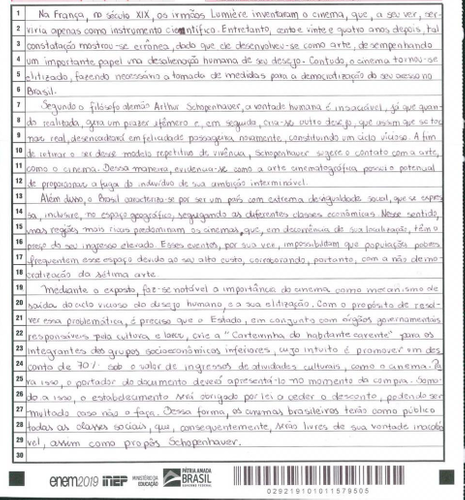 1 Na França, no século XIX, os irmãos Lumière inventaram o cinema, que, a seu ver, ser-
2 viria apenas como instrumento científico. Entretanto, cento e vinte e quatro anos depois, tal
3 constatação mostrou-se errônea, dado que ele desenvolveu-se como arte, desempenhando
4 um importante papel na desalienação humana de seu desejo. Contudo, o cinema tornou-se
5 elitizado, fazendo necessária a tomada de medidas para a democratização do seu acesso no
6 Brasil.
7 Segundo o filósofo alemão Arthur Schopenhauer, a vontade humana é insaciável, já que quan-
8 do realizada, gera um prazer efêmero e, em seguida, cria-se outro desejo, que assim que se tor-
9 nar real, desencadeará em felicidade passageira, novamente, constituindo um ciclo vicioso. A fim
10 de retirar o ser desse modelo repetitivo de vivência, Schopenhauer sugere o contato com a arte,
11 como o cinema. Dessa maneira, evidencia-se como a arte cinematográfica possui o potencial
12 de proporcionar a fuga do indivíduo de sua ambição interminável.
13 Além disso, o Brasil caracteriza-se por ser um país com extrema desigualdade social, que se expres-
14 sa, inclusive, no espaço geográfico, segregando as diferentes classes econômicas. Nesse sentido,
15 nas regiões mais ricas predominam os cinemas, que, em decorrência de sua localização, têm o
16 preço do seu ingresso elevado. Esses eventos, por sua vez, impossibilitam que populações pobres
17 frequentem esse espaço devido ao seu alto custo, corroborando, portanto, com a não democ-
18 ratização da sétima arte.
19 Mediante o exposto, faz-se notável a importância do cinema como mecanismo de
20 saída do ciclo vicioso do desejo humano, e a sua elitização. Com o propósito de resol-
21 ver essa problemática, é preciso que o Estado, em conjunto com órgãos governamentais
22 responsáveis pela cultura e lazer, crie a "Carteirinha do habitante carente" para os
23 integrantes dos grupos socioeconômicos inferiores, cujo intuito é promover um des-
24 conto de 70% sob o valor de ingressos de atividades culturais, como o cinema. Pa-
25 ra isso, o portador do documento deverá apresentá-lo no momento da compra. Soma-
26 do a isso, o estabelecimento será obrigado por lei a ceder o desconto, podendo ser
27 multado caso não o faça. Dessa forma, os cinemas brasileiros terão como público
28 todas as classes sociais, que, consequentemente, serão livres de sua vontade insaciá-
29 vel, assim como propôs Schopenhauer.
30
enem2019 inep MINISTÉRIO DA EDUCAÇÃO PÁTRIA AMADA BRASIL GOVERNO FEDERAL
029219101011579505